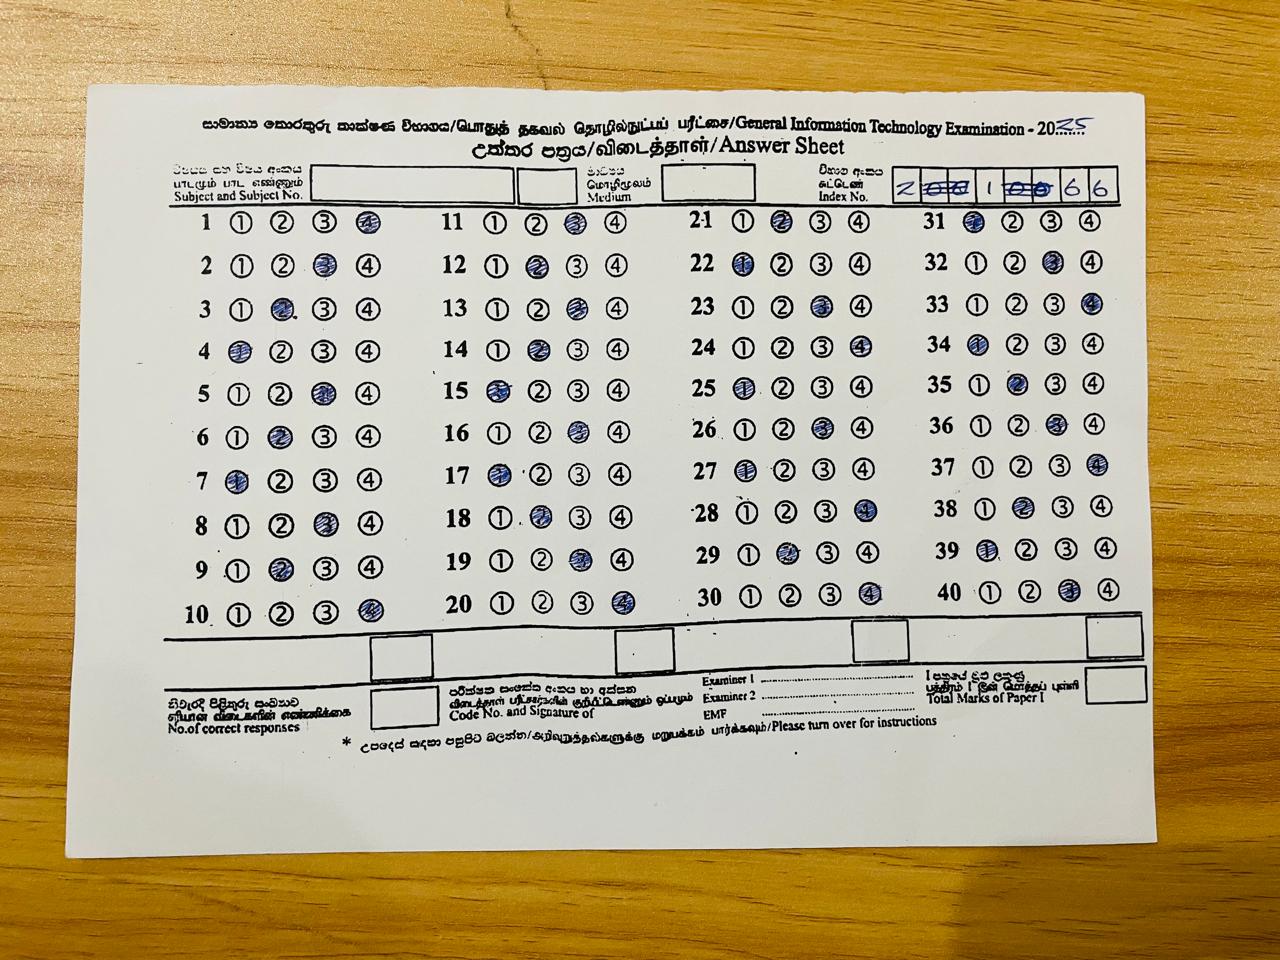 සාමාන්‍ය තොරතුරු තාක්ෂණ විභාගය/பொதுத் தகவல் தொழில்நுட்பப் பரீட்சை/General Information Technology Examination - 2025
උත්තර පත්‍රය/விடைத்தாள்/Answer Sheet
විෂයය සහ විෂය අංකය
பாடமும் பாட எண்ணும்
Subject and Subject No.
මාධ්‍යය
மொழிமூலம்
Medium
විභාග අංකය
சுட்டெண்
Index No.
2 1 6 6
1 ① ② ③ ④ 11 ① ② ③ ④ 21 ① ② ③ ④ 31 ① ② ③ ④
2 ① ② ③ ④ 12 ① ② ③ ④ 22 ① ② ③ ④ 32 ① ② ③ ④
3 ① ② ③ ④ 13 ① ② ③ ④ 23 ① ② ③ ④ 33 ① ② ③ ④
4 ① ② ③ ④ 14 ① ② ③ ④ 24 ① ② ③ ④ 34 ① ② ③ ④
5 ① ② ③ ④ 15 ① ② ③ ④ 25 ① ② ③ ④ 35 ① ② ③ ④
6 ① ② ③ ④ 16 ① ② ③ ④ 26 ① ② ③ ④ 36 ① ② ③ ④
7 ① ② ③ ④ 17 ① ② ③ ④ 27 ① ② ③ ④ 37 ① ② ③ ④
8 ① ② ③ ④ 18 ① ② ③ ④ 28 ① ② ③ ④ 38 ① ② ③ ④
9 ① ② ③ ④ 19 ① ② ③ ④ 29 ① ② ③ ④ 39 ① ② ③ ④
10 ① ② ③ ④ 20 ① ② ③ ④ 30 ① ② ③ ④ 40 ① ② ③ ④
නිවැරදි පිළිතුරු සංඛ්‍යාව
சரியான விடைகளின் எண்ணிக்கை
No.of correct responses
පරීක්ෂක සංකේත අංකය හා අත්සන
விடைத்தாள் பரீட்சகரின் குறியீட்டெண்ணும் ஒப்பமும்
Code No. and Signature of
Examiner 1
Examiner 2
EMF
I පත්‍රයේ මුළු ලකුණු
பத்திரம் I இன் மொத்தப் புள்ளி
Total Marks of Paper I
* උපදෙස් සඳහා පසුපිට බලන්න/அறிவுறுத்தல்களுக்கு மறுபக்கம் பார்க்கவும்/Please turn over for instructions